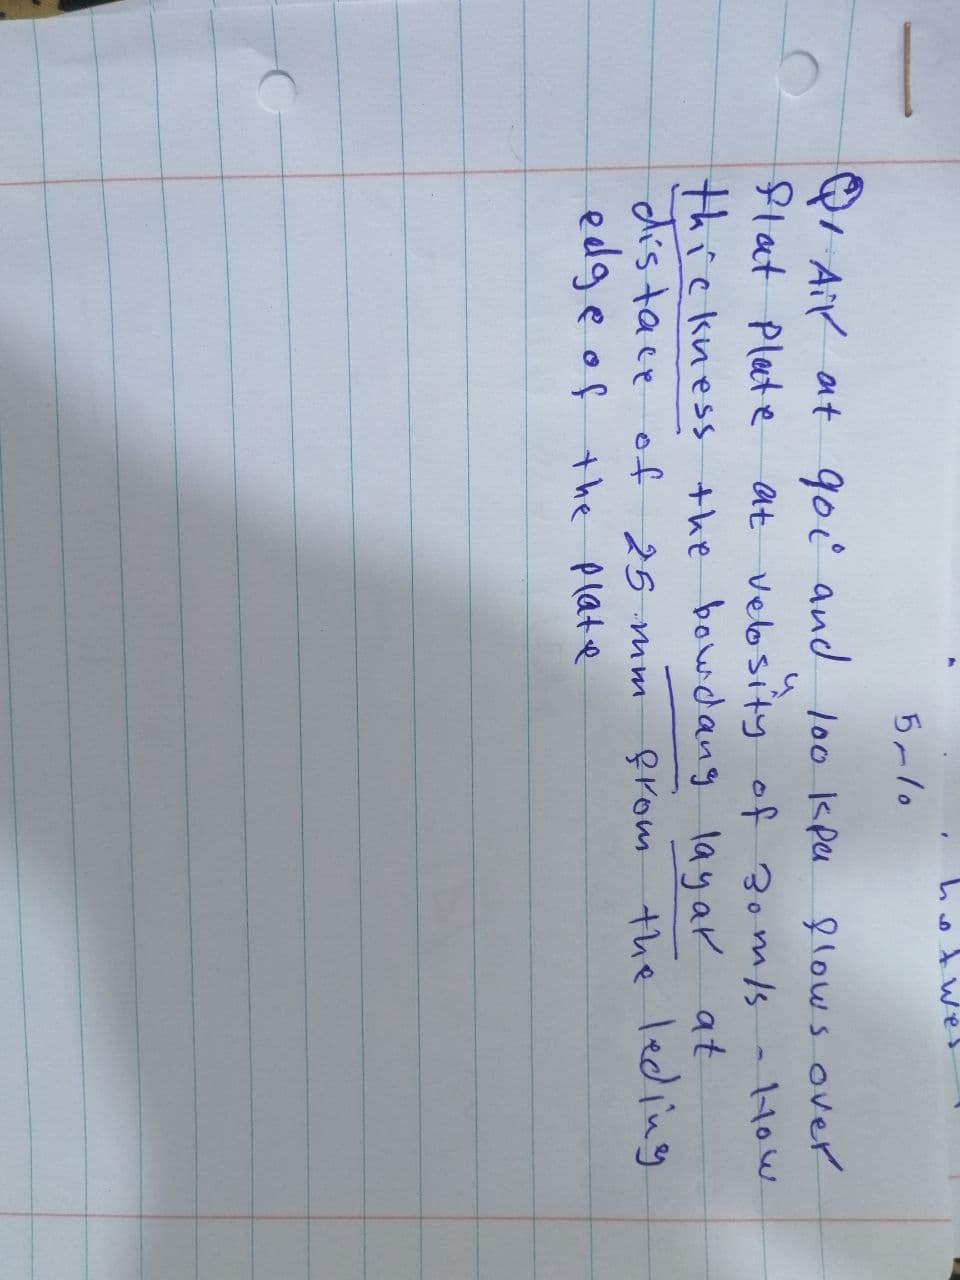 5-10
Q1 Air at 90c° and 100 kpa flows over
flat plate at velosity u of 30 m/s - How
thickness the bowdang layar at
distace of 25 mm from the leding
edge of the plate